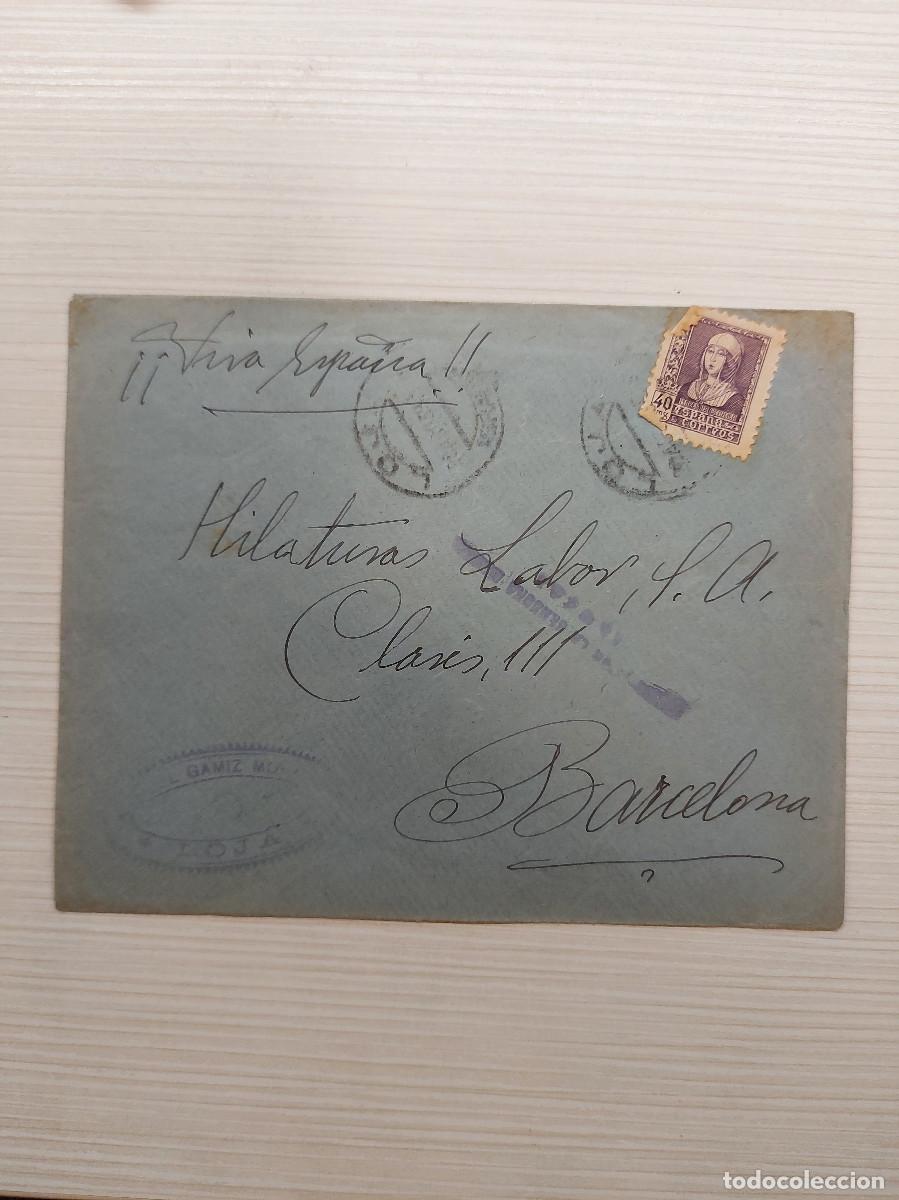 ¡¡Viva España!!
40
CTS
ESPAÑA
CORREOS
LOJA
LOJA
Hilaturas Labor, S. A.
Claris, 111
Barcelona
GAMIZ
LOJA
todocoleccion